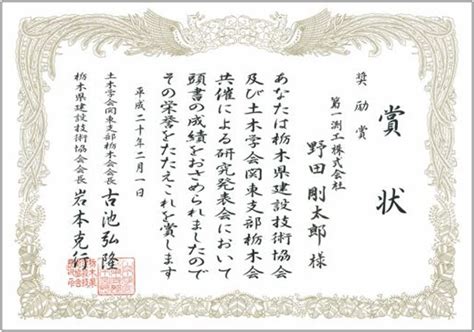 賞状
奨励賞
第一測工株式会社
野田剛太郎様
あなたは栃木県建設技術協会
及び土木学会関東支部栃木会
共催による研究発表会において
頭書の成績をおさめられましたので
その栄誉をたたえこれを賞します
平成二十年二月一日
土木学会関東支部栃木会会長 古池弘隆
栃木県建設技術協会会長 岩本克行